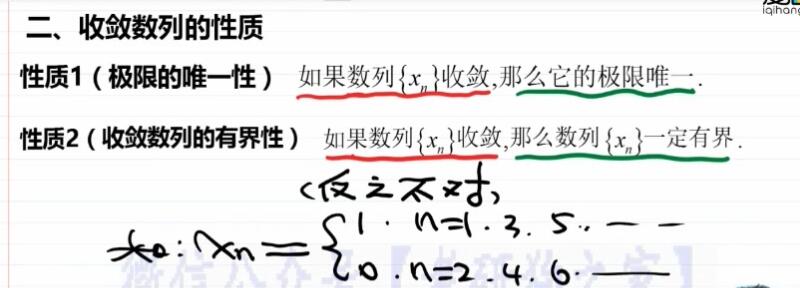 iqihang
二、收敛数列的性质
性质1（极限的唯一性） 如果数列{xₙ}收敛,那么它的极限唯一.
性质2（收敛数列的有界性） 如果数列{xₙ}收敛,那么数列{xₙ}一定有界.
(反之不对)
如: Xn = { 1. n=1. 3. 5. . — —
0. n=2. 4. 6. ——